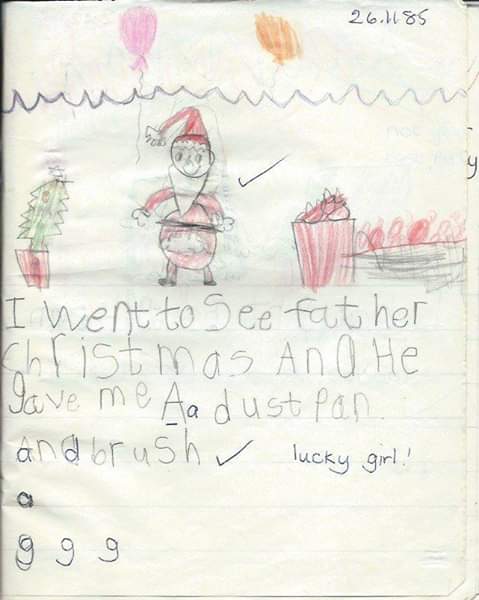 26.11.85
I went to See father
christmas And He
gave me Aa dust pan.
and brush lucky girl!
a
g g g